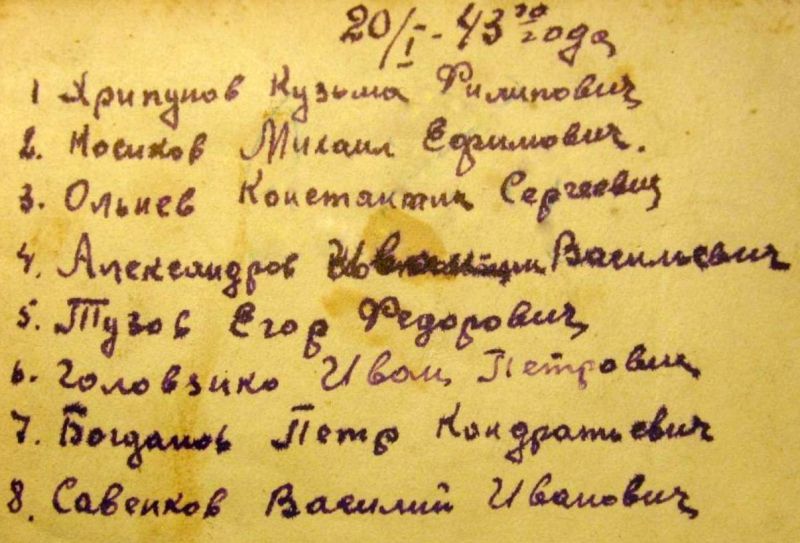 20/I - 43 го года
1 Хрипунов Кузьма Филипович
2. Носиков Михаил Ефимович.
3. Ольнев Константин Сергеевич
4. Александров Васильевич
5. Тузов Егор Федорович
6. Головзико Иван Петрович
7. Богданов Петр Кондратьевич
8. Савенков Василий Иванович